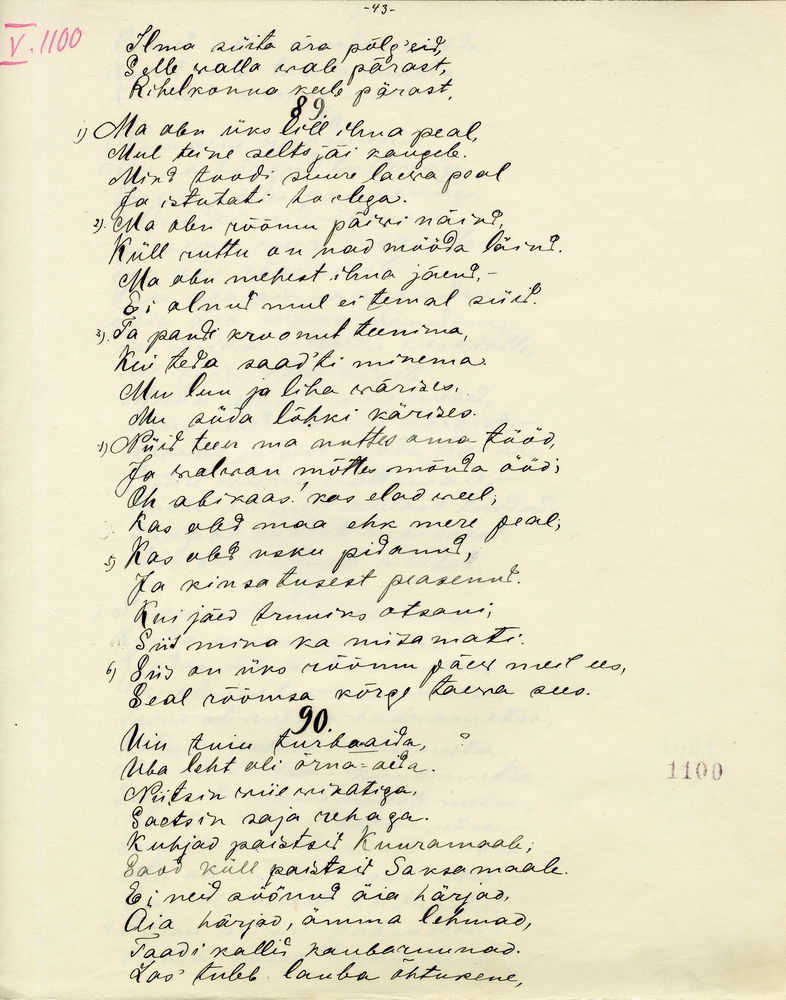 -43-
V.1100
Ilma süita ära põlg'eid,
Selle walla wale pärast,
Rihelkonna keele pärast.
89.
1) Ma olen üks lill ilma peal,
Mul teine selts jäi kaugele.
Mind toodi suure laewa peal
Ja istutati hoolega.
2). Ma olen rõõmu päiwi näind,
Küll ruttu on nad mööda läind.
Ma olen mehest ilma jäend,-
Ei olnud mul ei temal süid.
3). Ta pandi kroonut teenima,
Kui teda saad'ti minema.
Mu luu ja liha wärises,
Mu süda lõhki kärises.
4) Nüid teen ma nuttes oma tööd,
Ja walwan mõttes mõnda ööd;
Oh abikaas! kas elad weel,
Kas oled maa ehk mere peal;
5) Kas oled usku pidanud,
Ja kiusatusest peasenud.
Kui jäed truuiks otsani,
Siis mina ka misamati.
6) Siis on üks rõõmu päew meil ees,
Seal rõõmsa kõrge taewa sees.
90.
Uin tuiu turba-aida,
Uba leht oli õrna-aida.
Niitsin wiie wikatiga,
Saetsin saja rehaga.
Kuhjad paistsid Kuuramaale,
Saod küll paistsid Saksamaale.
Ei neid söönud äia härjad,
Äia härjad, ämma lehmad,
Taadi kallid kaubaruunad.
Las' tuleb lauba õhtukene,
1100